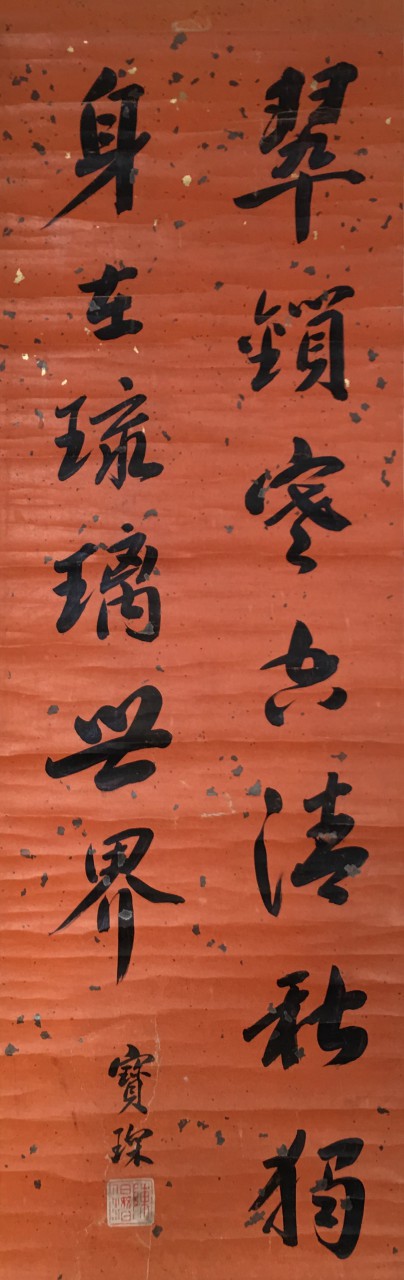 翠鎖寒清秋獨
身在琉璃世界
寶琛